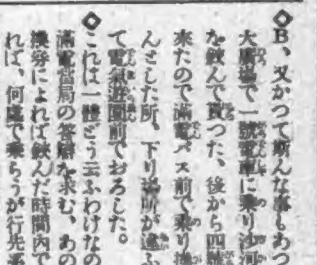 ◇B、又かつて斯んな事もあつ
大廣場で一號電車に乘り沙河
を鋏んで貰つた、後から四號
來たので滿電バス前で乘り換
んとした所、下り場所が違ふ
て電氣遊園前でおろした。
◇これは一體どう云ふわけなの
滿電當局の答辯を求む、あの
換券によれば鋏んだ時間內で
れば、何處で乘らうが行先系